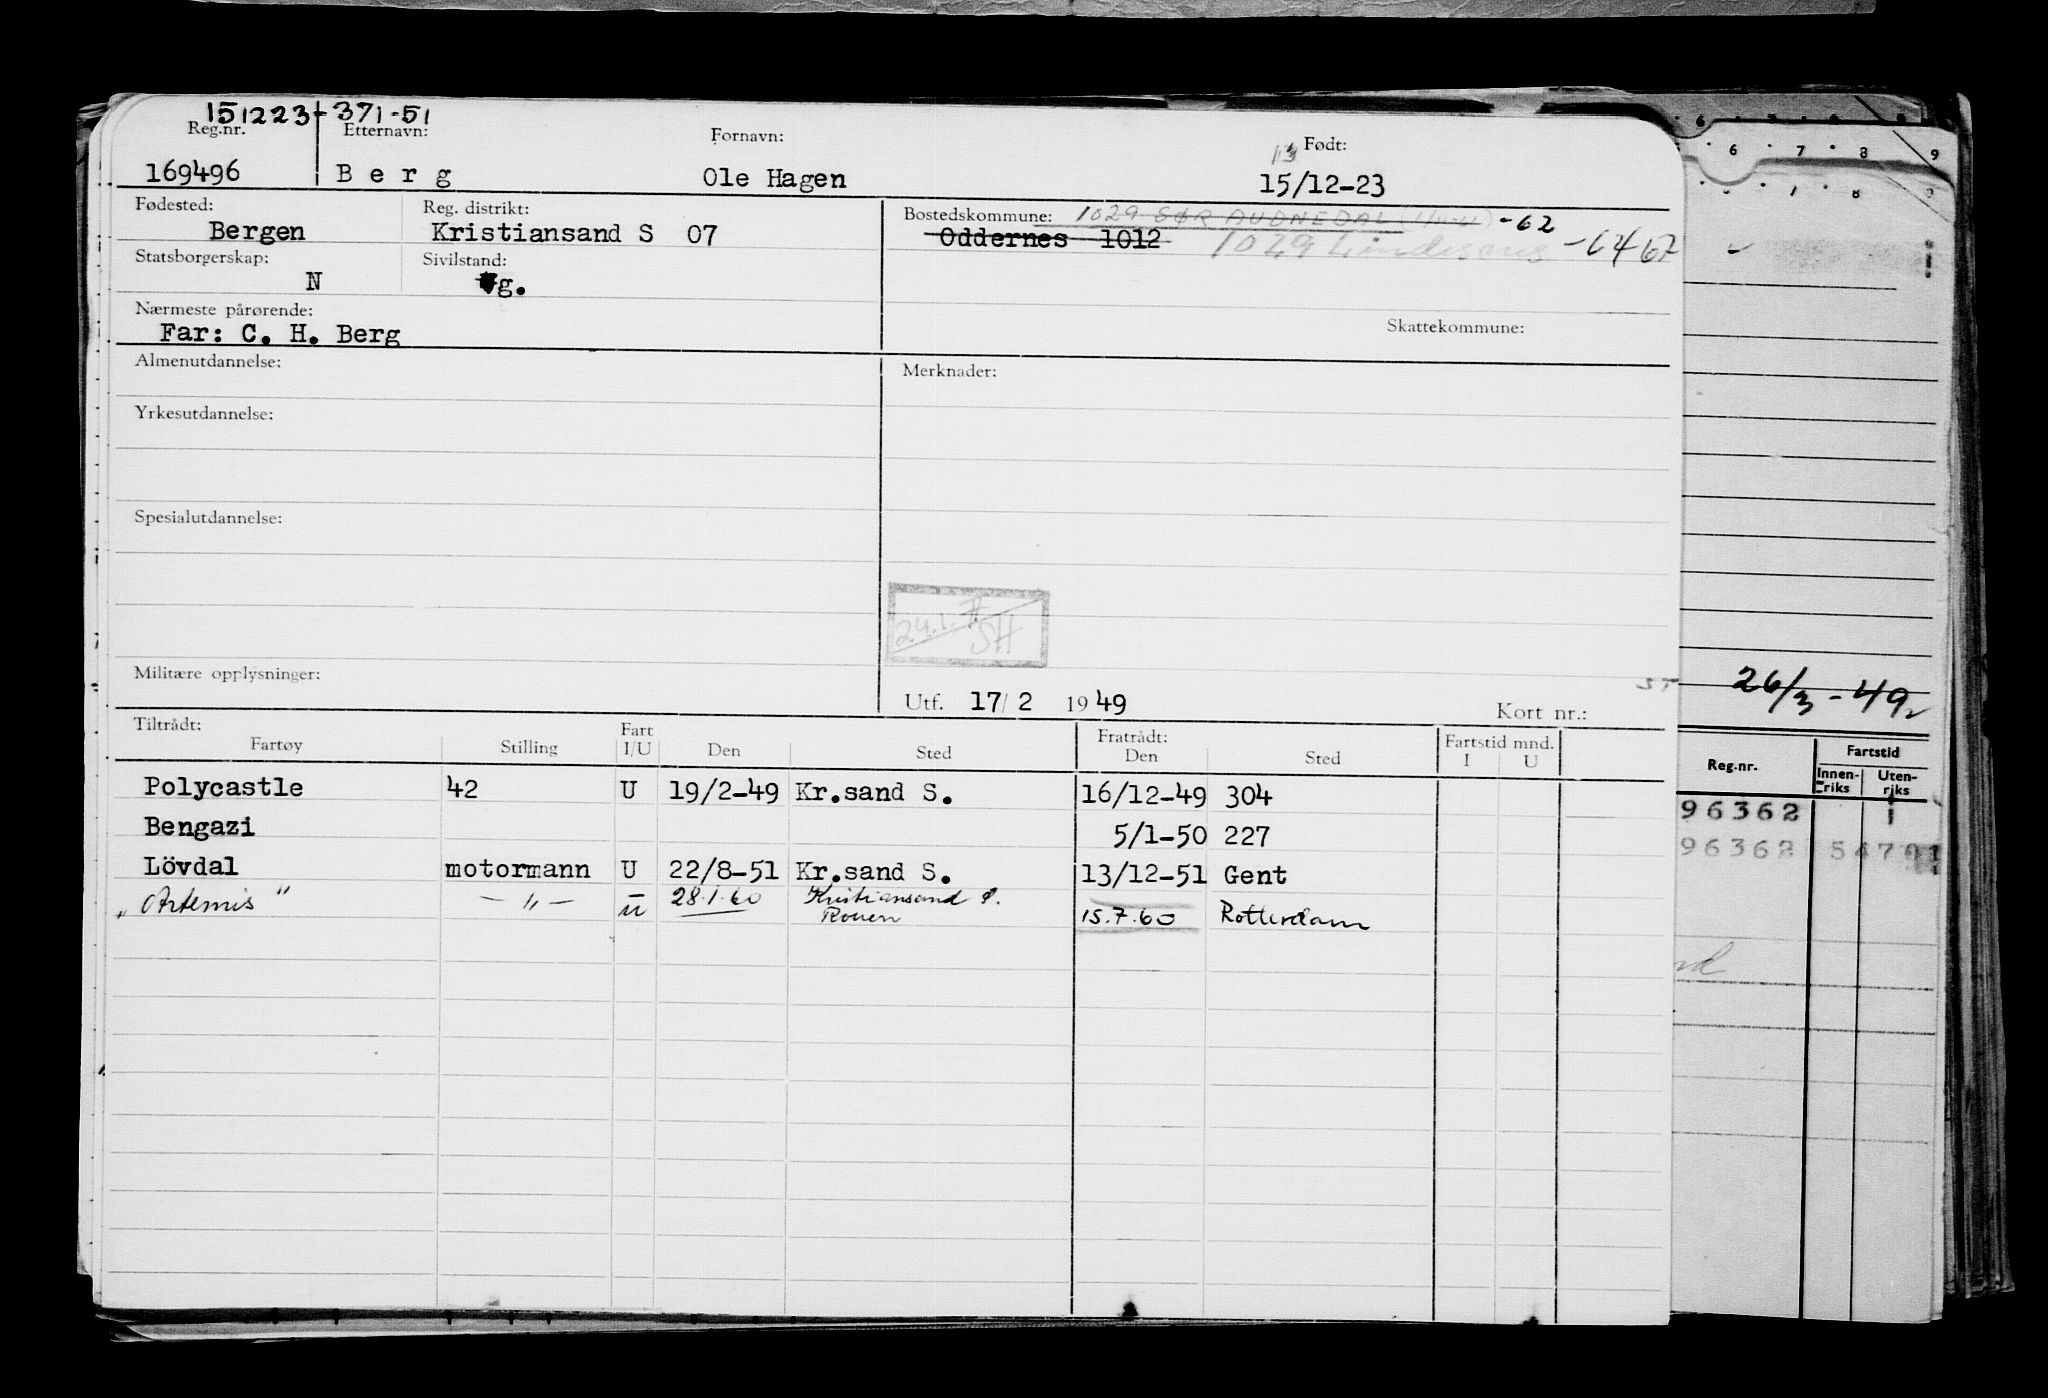 151223-371-51
Reg.nr. Etternavn: Fornavn: Født:
13
169496 Berg Ole Hagen 15/12-23
Fødested: Reg. distrikt: Bostedskommune: 1029 SØR AUDNEDAL -62
Bergen Kristiansand S 07 Oddernes 1012 1029 Lindesnes -64 67
Statsborgerskap: Sivilstand:
N g.
Nærmeste pårørende: Skattekommune:
Far: C. H. Berg
Almenutdannelse: Merknader:
Yrkesutdannelse:
Spesialutdannelse:
24.1. SH
Militære opplysninger:
Utf. 17/2 1949 Kort nr.:
Tiltrådt: Fart Fratrådt: Fartstid mnd.
Fartøy Stilling I/U Den Sted Den Sted I U
Polycastle 42 U 19/2-49 Kr.sand S. 16/12-49 304
Bengazi 5/1-50 227
Lövdal motormann U 22/8-51 Kr.sand S. 13/12-51 Gent
"Artemis" — " — U 28.1.60 Kristiansand S. 15.7.60 Rotterdam
Rouen
6 7 8 9
26/3-49
Reg.nr. Fartstid
Innen-riks Uten-riks
96362 1
96362